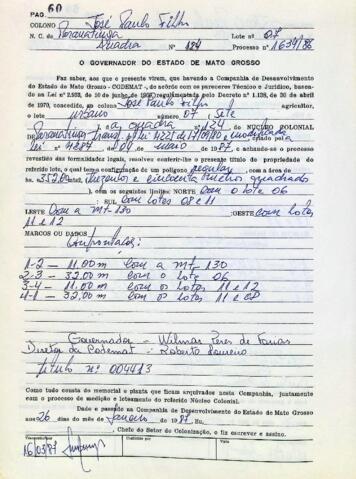 PAG. 60
COLONO José Paulo Filho
N. C. de Paranatinga Lote nº 07
Quadra Nº 124 Processo nº 1634/86
O GOVERNADOR DO ESTADO DE MATO GROSSO
Faz saber, aos que a presente virem, que havendo a Companhia de Desenvolvimento
do Estado de Mato Grosso - CODEMAT -, de acôrdo com os pareceres Técnico e Jurídico, basea-
do na Lei nº 2.933, de 10 de junho de regulamentado pelo Decreto nº 1.138, de 30 de abril
de 1970, concedido, ao colono José Paulo Filho agricultor,
o lote urbano nº 07 sete
a quadra 124 DO NUCLEO COLONIAL
Paranatinga modificada
lei nº 4287 de 04 de maio de 1987, e achando-se o processo
revestido das formalidades legais, resolveu conferir-lhe o presente título de propriedade do
referido lote, o qual tema configuração de um polígono regular com a área de
hs. 352,00 trezentos e cincoenta metros quadrados
com os seguintes limites: NORTE Com o lote 06
SUL Com lotes 08 e 11
LESTE Com a mt-130 :OESTE com lotes
11 e 12
MARCOS OU DADOS
Confrontação:
1-2 - 11.00m com a mt-130
2-3 - 32.00m com o lote 06
3-4 - 11.00m com os lotes 11 e 12
4-1 - 32,00m com os lotes 11 e 08
Governador - Wilmar Peres de Farias
Diretor da Codemat - Roberto Loureiro
Título nº 004413
Como tudo consta do memorial e planta que ficam arquivados nesta Companhia, juntamente
com o processo de medição e loteamento do referido Núcleo Colonial.
Dado e passado na Companhia de Desenvolvimento do Estado de Mato Grosso
aos 26 dias do mês de Janeiro de 1987. Eu,
, Chefe do Setor de Colonização, o fiz escrever e assino.
Conferido por Visto
16/03/87